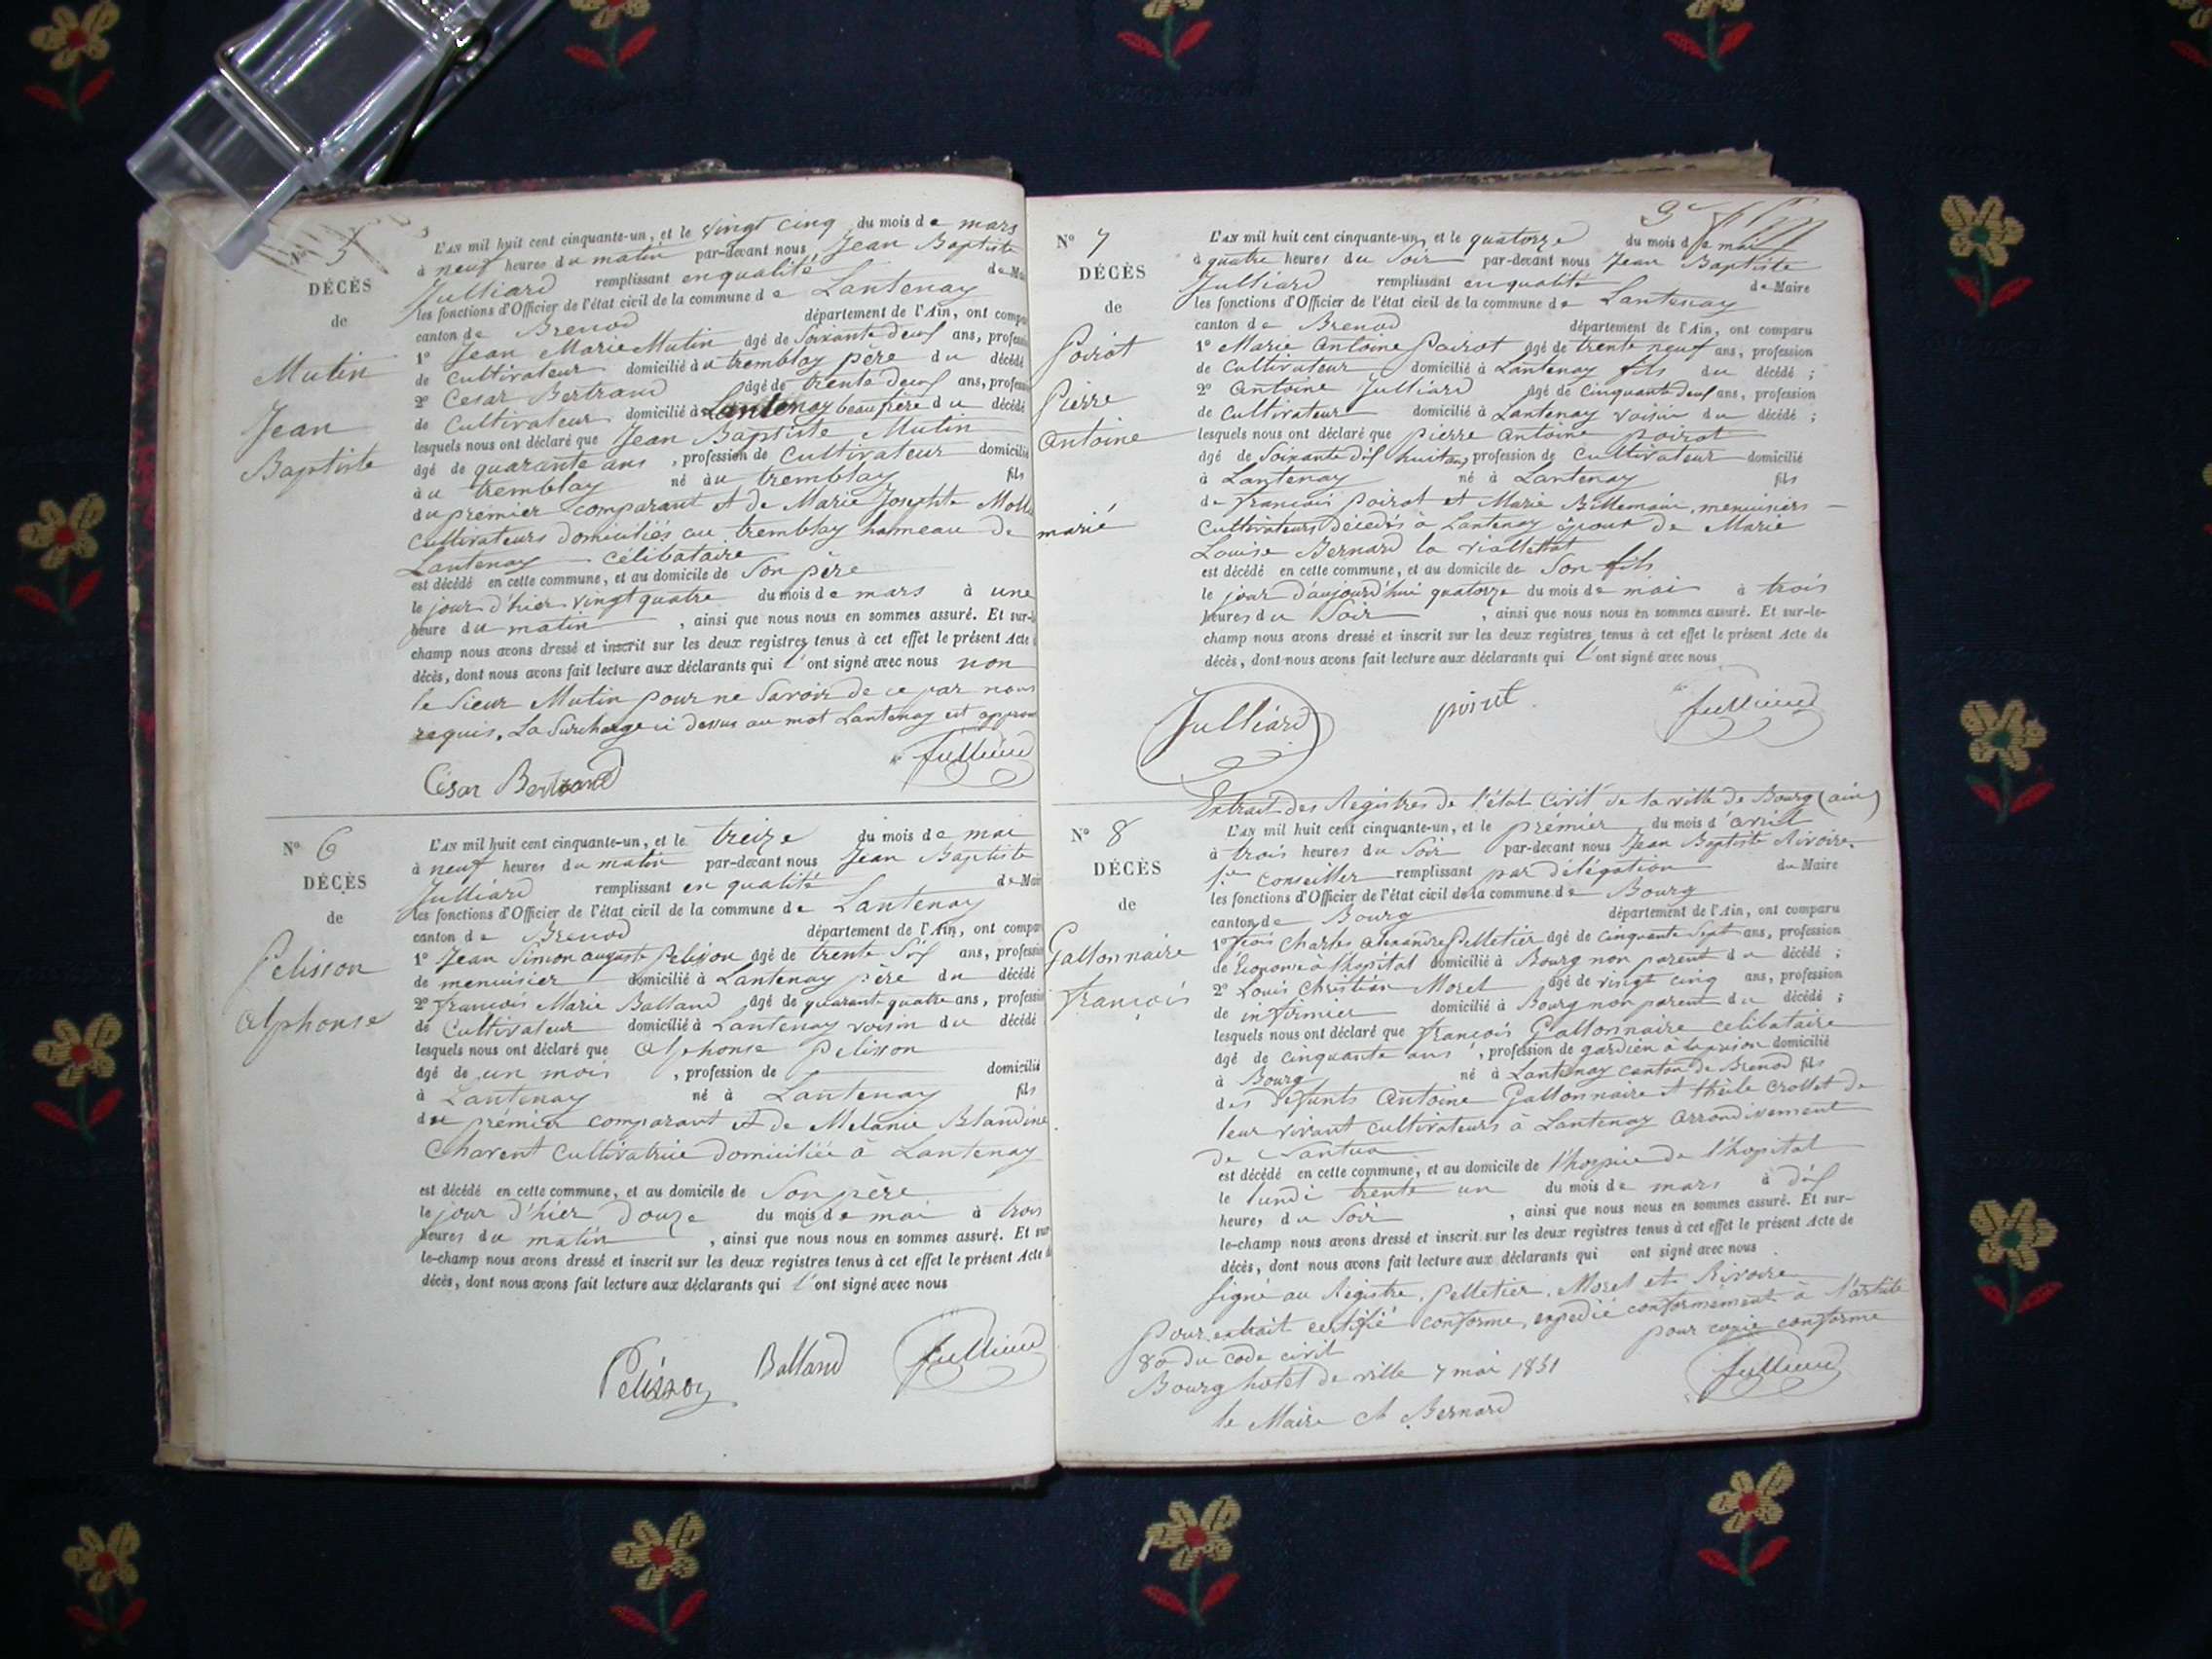 No 5
DÉCÈS
de
Mutin
Jean
Baptiste
L'AN mil huit cent cinquante-un, et le vingt cinq du mois de mars
à neuf heures du matin par-devant nous Jean Baptiste
Julliard remplissant en qualité de Mai
les fonctions d'Officier de l'état civil de la commune de Lantenay
canton de Brenod département de l'Ain, ont compa
1º Jean Marie Mutin âgé de Soixante deux ans, profession
de Cultivateur domicilié à u tremblay père du décédé
2º Cesar Bertrand âgé de trente deux ans, profession
de Cultivateur domicilié à Lantenay beau frère du décédé
lesquels nous ont déclaré que Jean Baptiste Mutin
âgé de quarante ans , profession de Cultivateur domicilié
à u tremblay né àu tremblay fils
du premier comparant et de Marie Josephte Moll
Cultivateurs domiciliés au tremblay hameau de
Lantenay célibataire
est décédé en cette commune, et au domicile de Son père
le jour d'hier vingt quatre du mois de mars à une
heure du matin , ainsi que nous nous en sommes assuré. Et sur-le
champ nous avons dressé et inscrit sur les deux registres tenus à cet effet le présent Acte d
décès, dont nous avons fait lecture aux déclarants qui l'ont signé avec nous non
le Sieur Mutin pour ne Savoir de ce par nous
requis. La Surcharge ci dessus au mot Lantenay est approu
César Bertrand Julliard
No 6
DÉCÈS
de
Pelisson
Alphonse
L'AN mil huit cent cinquante-un, et le treize du mois de mai
à neuf heures du matin par-devant nous Jean Baptiste
Julliard remplissant en qualité de Mair
les fonctions d'Officier de l'état civil de la commune de Lantenay
canton de Brenod département de l'Ain, ont compar
1º Jean Simon auguste Pelisson âgé de trente Six ans, profession
de menuisier domicilié à Lantenay père du décédé
2º françois Marie Balland âgé de quarante quatre ans, profession
de Cultivateur domicilié à Lantenay voisin du décédé
lesquels nous ont déclaré que Alphonse pelisson
âgé de un mois , profession de domicilié
à Lantenay né à Lantenay fils
du prémier comparant et de Melanie Blandine
Charent Cultivatrice domiciliée à Lantenay
est décédé en cette commune, et au domicile de Son père
le jour d'hier douze du mois de mai à trois
heures du matin , ainsi que nous nous en sommes assuré. Et sur
le-champ nous avons dressé et inscrit sur les deux registres tenus à cet effet le présent Acte de
décès, dont nous avons fait lecture aux déclarants qui l'ont signé avec nous
Pelisson Balland Julliard
No 7
DÉCÈS
de
Poirot
Pierre
Antoine
marié
L'AN mil huit cent cinquante-un, et le quatorze du mois de mai
à quatre heures du Soir par-devant nous Jean Baptiste
Julliard remplissant en qualité de Maire
les fonctions d'Officier de l'état civil de la commune de Lantenay
canton de Brenod département de l'Ain, ont comparu
1º Marie Antoine Poirot âgé de trente neuf ans, profession
de Cultivateur domicilié à Lantenay fils du décédé ;
2º Antoine Julliard âgé de Cinquante deux ans, profession
de Cultivateur domicilié à Lantenay voisin du décédé ;
lesquels nous ont déclaré que pierre Antoine poirot
âgé de Soixante dix huit ans, profession de Cultivateur domicilié
à Lantenay né à Lantenay fils
de françois poirot et Marie Billemain, menuisiers
Cultivateurs décédés à Lantenay époux de Marie
Louise Bernard la
est décédé en cette commune, et au domicile de Son fils
le jour d'aujourd'hui quatorze du mois de mai à trois
heures du Soir , ainsi que nous nous en sommes assuré. Et sur-le-
champ nous avons dressé et inscrit sur les deux registres tenus à cet effet le présent Acte de
décès, dont nous avons fait lecture aux déclarants qui l'ont signé avec nous
Julliard poirot Julliard
Extrait des Registres de l'état Civil de la ville de Bourg (ain)
No 8
DÉCÈS
de
Gallonnaire
François
L'AN mil huit cent cinquante-un, et le prémier du mois d'avril
à trois heures du Soir par-devant nous Jean Baptiste Rivoire
1er Conseiller remplissant par délégation du Maire
les fonctions d'Officier de l'état civil de la commune de Bourg
canton de Bourg département de l'Ain, ont comparu
1º fçois Charles alexandre Pelletier âgé de Cinquante Sept ans, profession
de Econome à l'hopital domicilié à Bourg non parent du décédé ;
2º Louis Christian Morel âgé de vingt cinq ans, profession
de infirmier domicilié à Bourg non parent du décédé ;
lesquels nous ont déclaré que françois Gallonnaire célibataire
âgé de cinquante ans , profession de gardien à la prison domicilié
à Bourg né à Lantenay canton de Brenod fils
des défunts Antoine Gallonnaire et Crollet de
leur vivant cultivateurs à Lantenay arrondissement
de Nantua
est décédé en cette commune, et au domicile de l'hospice de l'hopital
le lundi trente un du mois de mars à dix
heures du Soir , ainsi que nous nous en sommes assuré. Et sur-
le-champ nous avons dressé et inscrit sur les deux registres tenus à cet effet le présent Acte de
décès, dont nous avons fait lecture aux déclarants qui ont signé avec nous
Signé au Régistre, Pelletier, Morel et Rivoire
Pour extrait certifié conforme, expedié conformément à l'article
80 du code civil pour copie conforme
Bourg hotel de ville 7 mai 1851
le Maire Ch Bernard Julliard